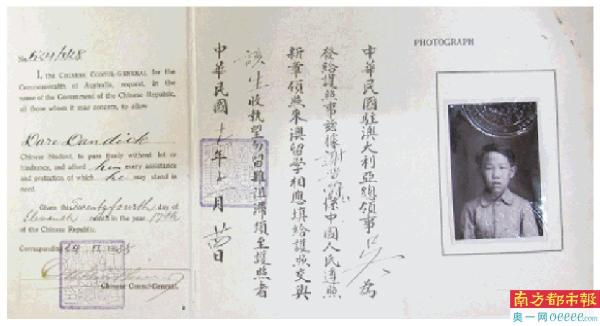 I, THE CHINESE CONSUL-GENERAL for the
Commonwealth of Australia, request, in the
name of the Government of the Chinese Republic,
all those whom it may concern, to allow
Chinese Student, to pass freely without let or
hindrance, and afford him every assistance
and protection of which he may stand in
need.
Given this Twenty fourth day of
Eleventh month in the year 17th
of the Chinese Republic.
Corresponding
Chinese Consul-General.
中華民國駐澳大利亞總領事 為
發給護照事茲據 係中國人民遵照
新章領照來澳留學相應填給護照交與
該生收執望勿留難阻滯須至護照者
中華民國十七年十一月 日
PHOTOGRAPH
南方都市報
奥一网oeeee.com